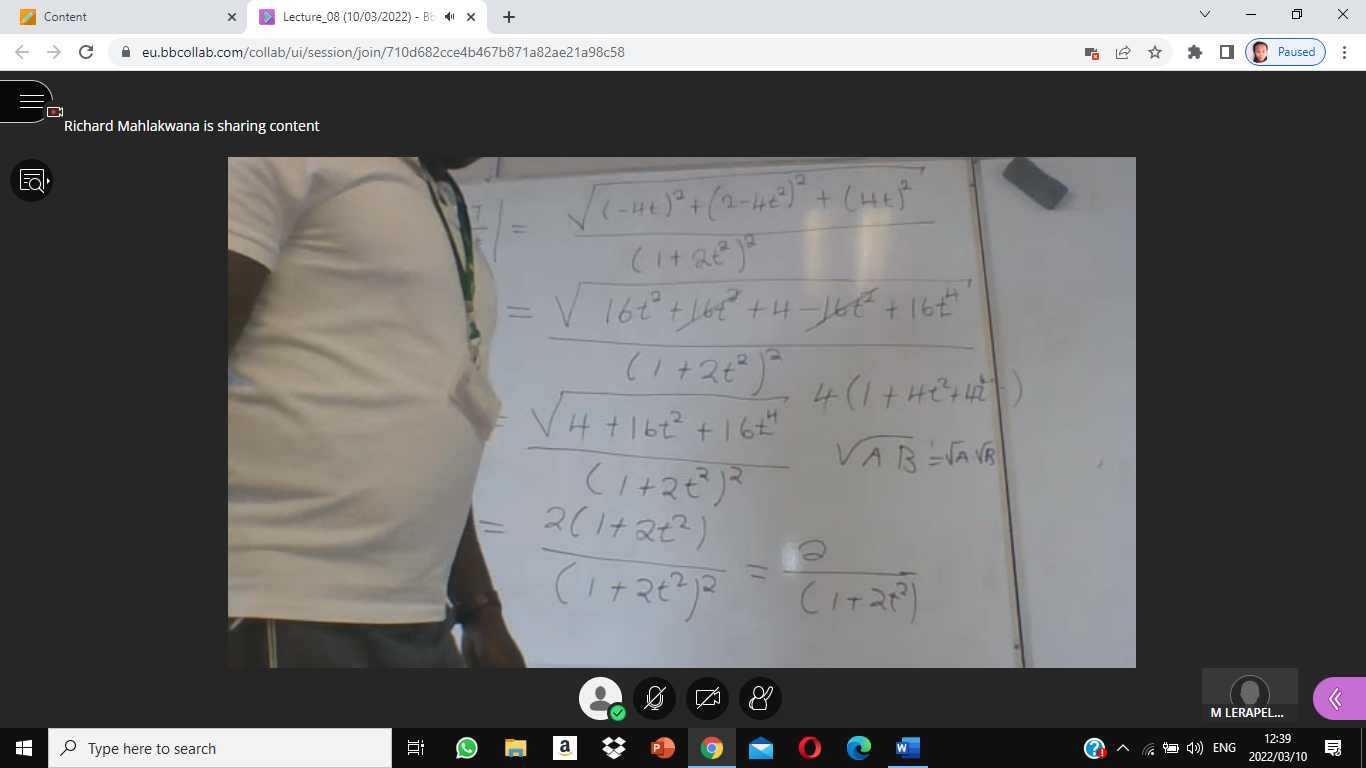 Content
Lecture_08 (10/03/2022) - Bb
eu.bbcollab.com/collab/ui/session/join/710d682cce4b467b871a82ae21a98c58
Paused
Richard Mahlakwana is sharing content
| = √((-4t)² + (2-4t²)² + (4t)²)
(1+2t²)²
= √(16t² + 16t² + 4 - 16t² + 16t⁴)
(1+2t²)²
4(1+4t²+4t⁴)
= √(4+16t²+16t⁴)
√AB = √A √B
(1+2t²)²
= 2(1+2t²)
(1+2t²)²
= 2
(1+2t²)
M LERAPEL...
Type here to search
ENG
12:39
2022/03/10